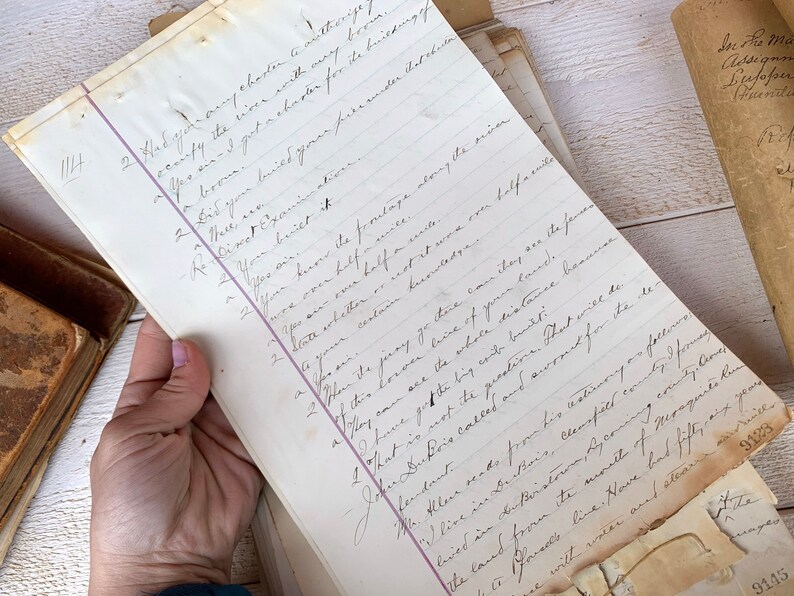 114
2 Had you any charter to authorize y
occupy the river with any boom.
a Yes sir- I got a charter for the building of
a boom.
2 Did you build your pier under that charter
a Well, no.
Re-Direct Examination.
2 You built it
a Yes sir.
2 You know the frontage along the river
was over half a mile.
a Yes sir- over half a mile.
2 State whether or not it was over half a mile
to your certain knowledge.
a Yes sir.
2 When the jury go there can they see the fences
of the lower line of your land.
a They can see the whole distance because
I have got the big crib built.
2 That is not the question. That will do.
John DuBois called and sworn for the de
fendant.
Mr Allen reads from his testimony as follows:
"I live in DuBois, Clearfield county, I formerly
lived in DuBoistown, Lycoming county. Owned
the land from the mouth of Mosquito Run
to line. Have had fifty, six years
with water and steam saw mill
9123
In the
Assignm
the
9115